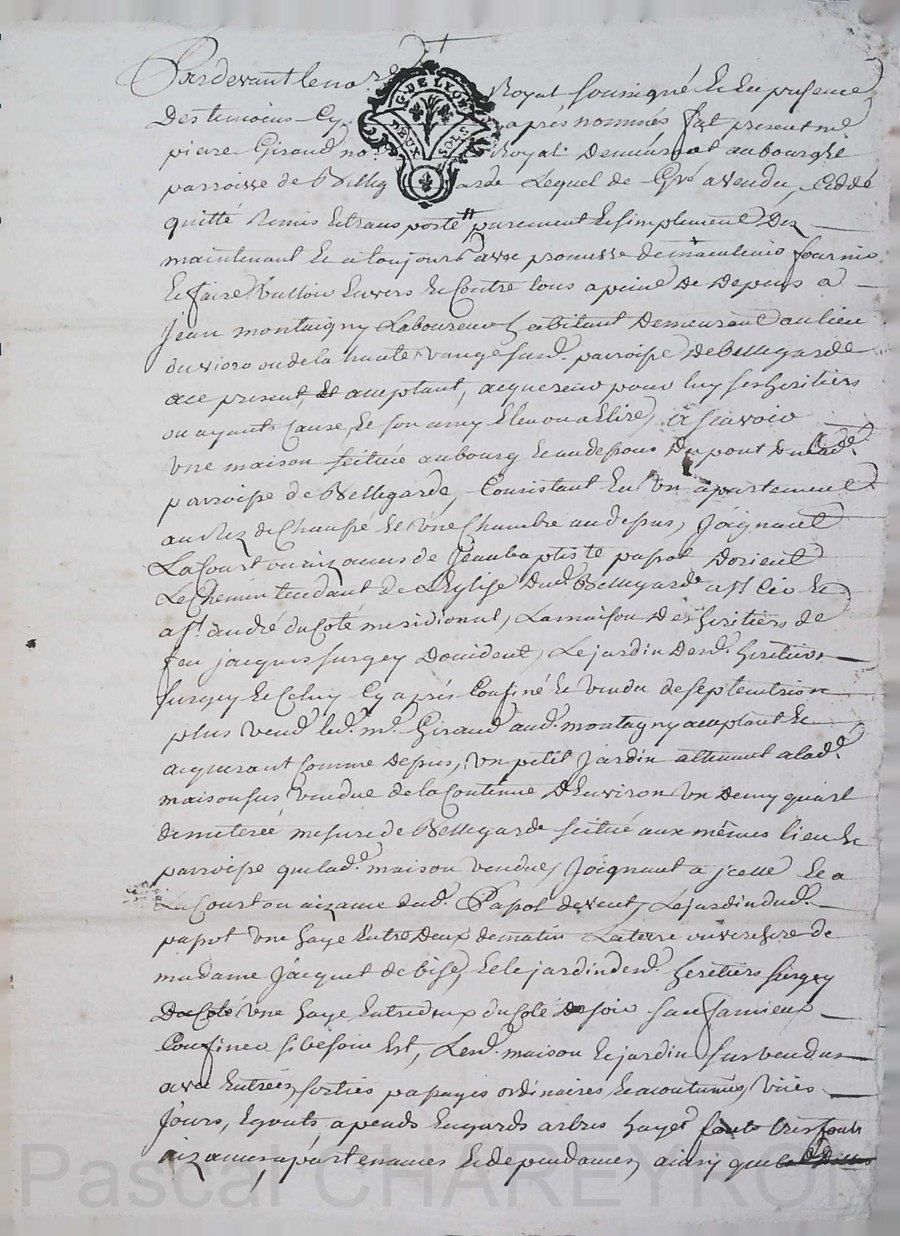 Pardevant le no.re Royal soussigné Et En presence
Des temoins Cy apres nommés fut present me
pierre Giraud no.re Royal Demeurant au bourg &
parroisse de Bellegarde Lequel de Gré a vendu, Ceddé
quitté Remis Et transporté purement Et simplement Dez
maintenant Et a toujours avec promesse de maintenir fournir
Et faire Valloir Envers Et Contre tous a peine De Depens a
Jean montaigny Laboureur habitant Demeurant au lieu
ou de la haute susd. parroisse De Bellegarde
ace present, Et acceptant, acquereur pour luy ses heritiers
ou ayants Cause, Et son amy Eleu ou a Elire, a scavoir
Une maison scituée au bourg Et au dessous Du pont Dulad.
parroisse de Bellegarde, Consistant En Un apartement
au Rez de Chaussé Et Une Chambre au dessus, Joignant
La Court ou aizances de Jean baptiste papot Dorient
Le Chemin tendant de L'Eglise Dud. Bellegarde a st Cir Et
a st. andré du Coté meridional, La maison Des heritiers de
feu jacques surgey Doccident, Le jardin Desd. heritiers
surgey Et Celuy Cy aprés Confiné Et Vendu de septentrion
plus Vend led. me. Giraud aud. montagny acceptant Et
acquerant Comme Dessus, Un petit Jardin attenant a lad.
maison sus Vendue de la Contenue D'Environ Un Demy quart
de meterée mesure de Bellegarde scitué aux mêmes lieu Et
parroisse que lad. maison vendue, Joignant a jcelle Et a
La Court ou aizance dud. Papot de vent, Le jardin dud.
papot Une haye Entre Deux de matin La terre de
madame Jacquet de bise, Et le jardin desd. heritiers surgey
Du Coté Une haye Entre deux du Coté De soir sauf a mieux
Confiner si besoin Est, Lesd. maison Et jardin sus vendus
avec Entrées, sortiés passages ordinaires Et accoutumés, Vües
Jours, Egouts apends Engards arbres hayes fonts tresfonts
aizances, apartenances Et dependances, ainsy que
G. DE LYON
DEUX SOLS
Pascal CHAREYRON